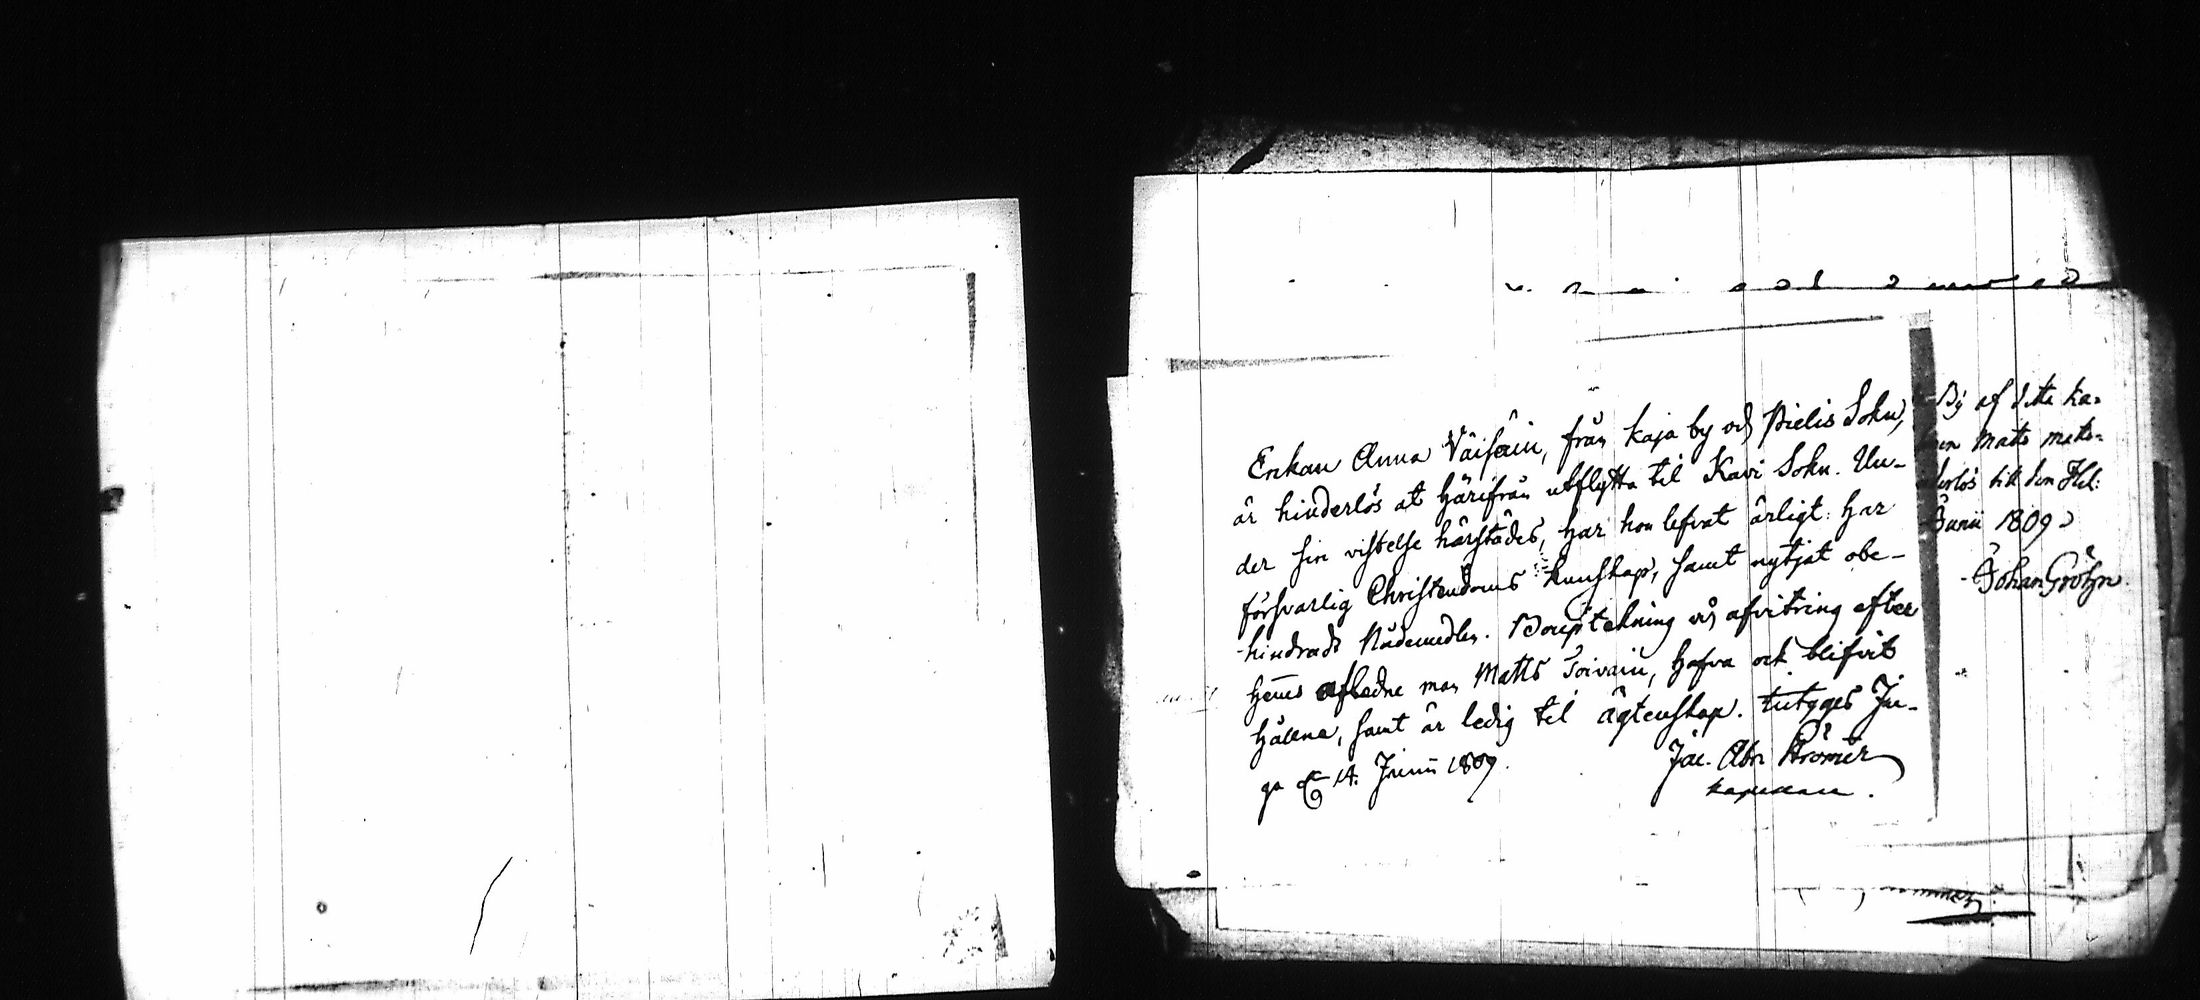 Enkan Anna Väisäin, från Kaja by och Pielis Sokn,
är hinderlös at härifrån utflytta til Kavi Sokn. Un-
der sin vistelse härstädes, har hon lefvat ärligt: har
försvarlig Christendoms kunskap, samt nytjat obe-
hindradt Nådemedlen. Bouptekning och afvitring efter
hennes afledne man Matts Toivain, hafva ock blifvit
hållna, samt är ledig til ägtenskap. Intygas Ju-
ga d. 14. Junii 1809.
Jac. Abr. Krömer
kapellan.
By af detta ka-
Matts
den Hel:
Junii 1809
Johan Gröhn